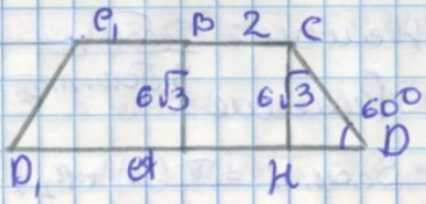 C₁ B 2 C
6√3 6√3 60°
D₁ A H D